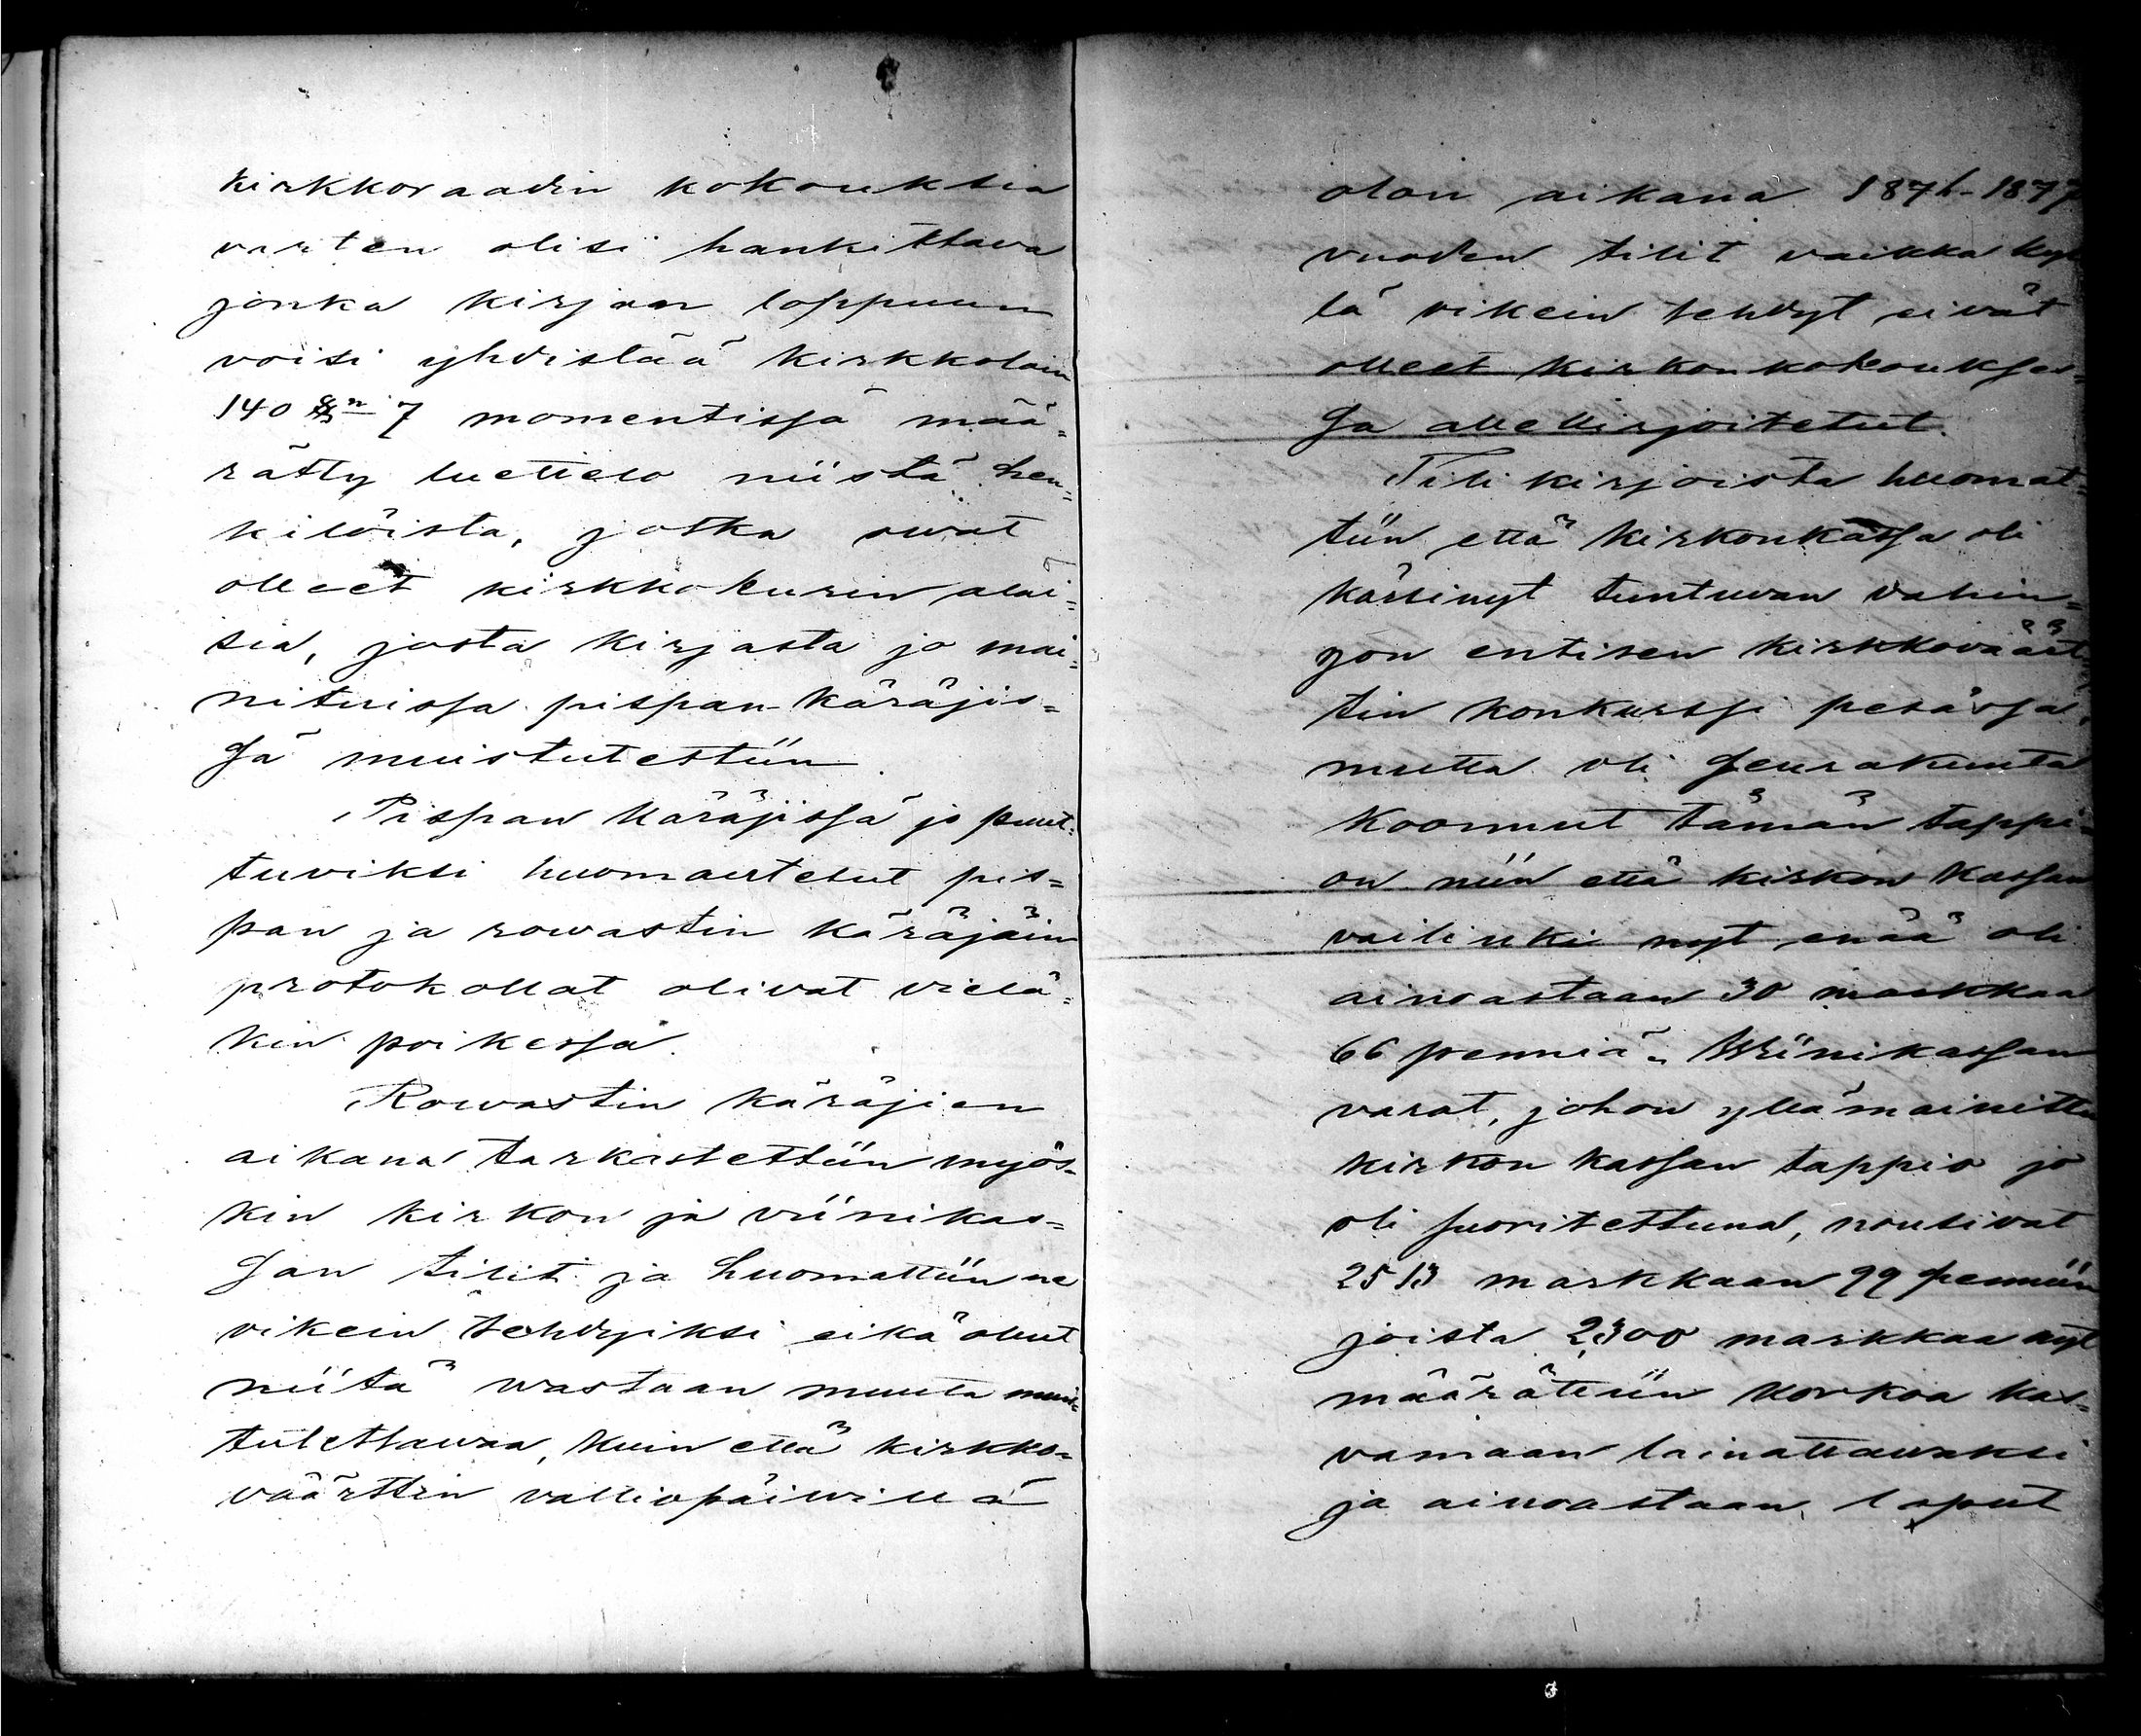 kirkkoraadin kokouksia
varten olisi hankittava
jonka kirjan loppuun
voisi yhdistää kirkkolain
140 §n 7 momentissa mää=
rätty luettelo niistä hen=
kilöista, jotka owat
olleet kirkkokurin alai=
sia, josta kirjasta jo mai=
nituissa pispan käräjis=
sä muistutettiin.
Pispan käräjissä jo puut=
tuviksi huomautetut pis=
pan ja rowastin käräjäin
protokollat olivat vielä=
kin poikessa.
Rowastin käräjien
aikana tarkastettiin myös=
kin kirkon ja viinikas=
san tilit ja huomattiin ne
oikein tehdyiksi eikä ollut
niitä wastaan muuta muis=
tutettawaa, kuin että kirkko=
väärttin valtiopäiwillä
olon aikana 1876-1877
vuoden tilit vaikka kyl
lä oikein tehdyt eivät
olleet kirkonkokoukses=
sa allekirjoitetut.
Tili kirjoista huomat=
tiin että kirkonkassa oli
kärsinyt tuntuvan vahin=
gon entisen kirkkoväärt=
tin konkurssi pesässä,
mutta oli seurakunta
koonnut tämän tappi=
on niin että kirkon kassan
vailinki nyt enää oli
ainoastaan 30 markkaa
66 penniä. Wiinikassan
varat, johon yllämainittu
kirkon kassan tappio jo
oli suoritettuna, nousivat
2513 markkaan 99 penniin
joista 2,300 markkaa nyt
määrättiin korkoa kas=
vamaan lainattawaksi
ja ainoastaan loput